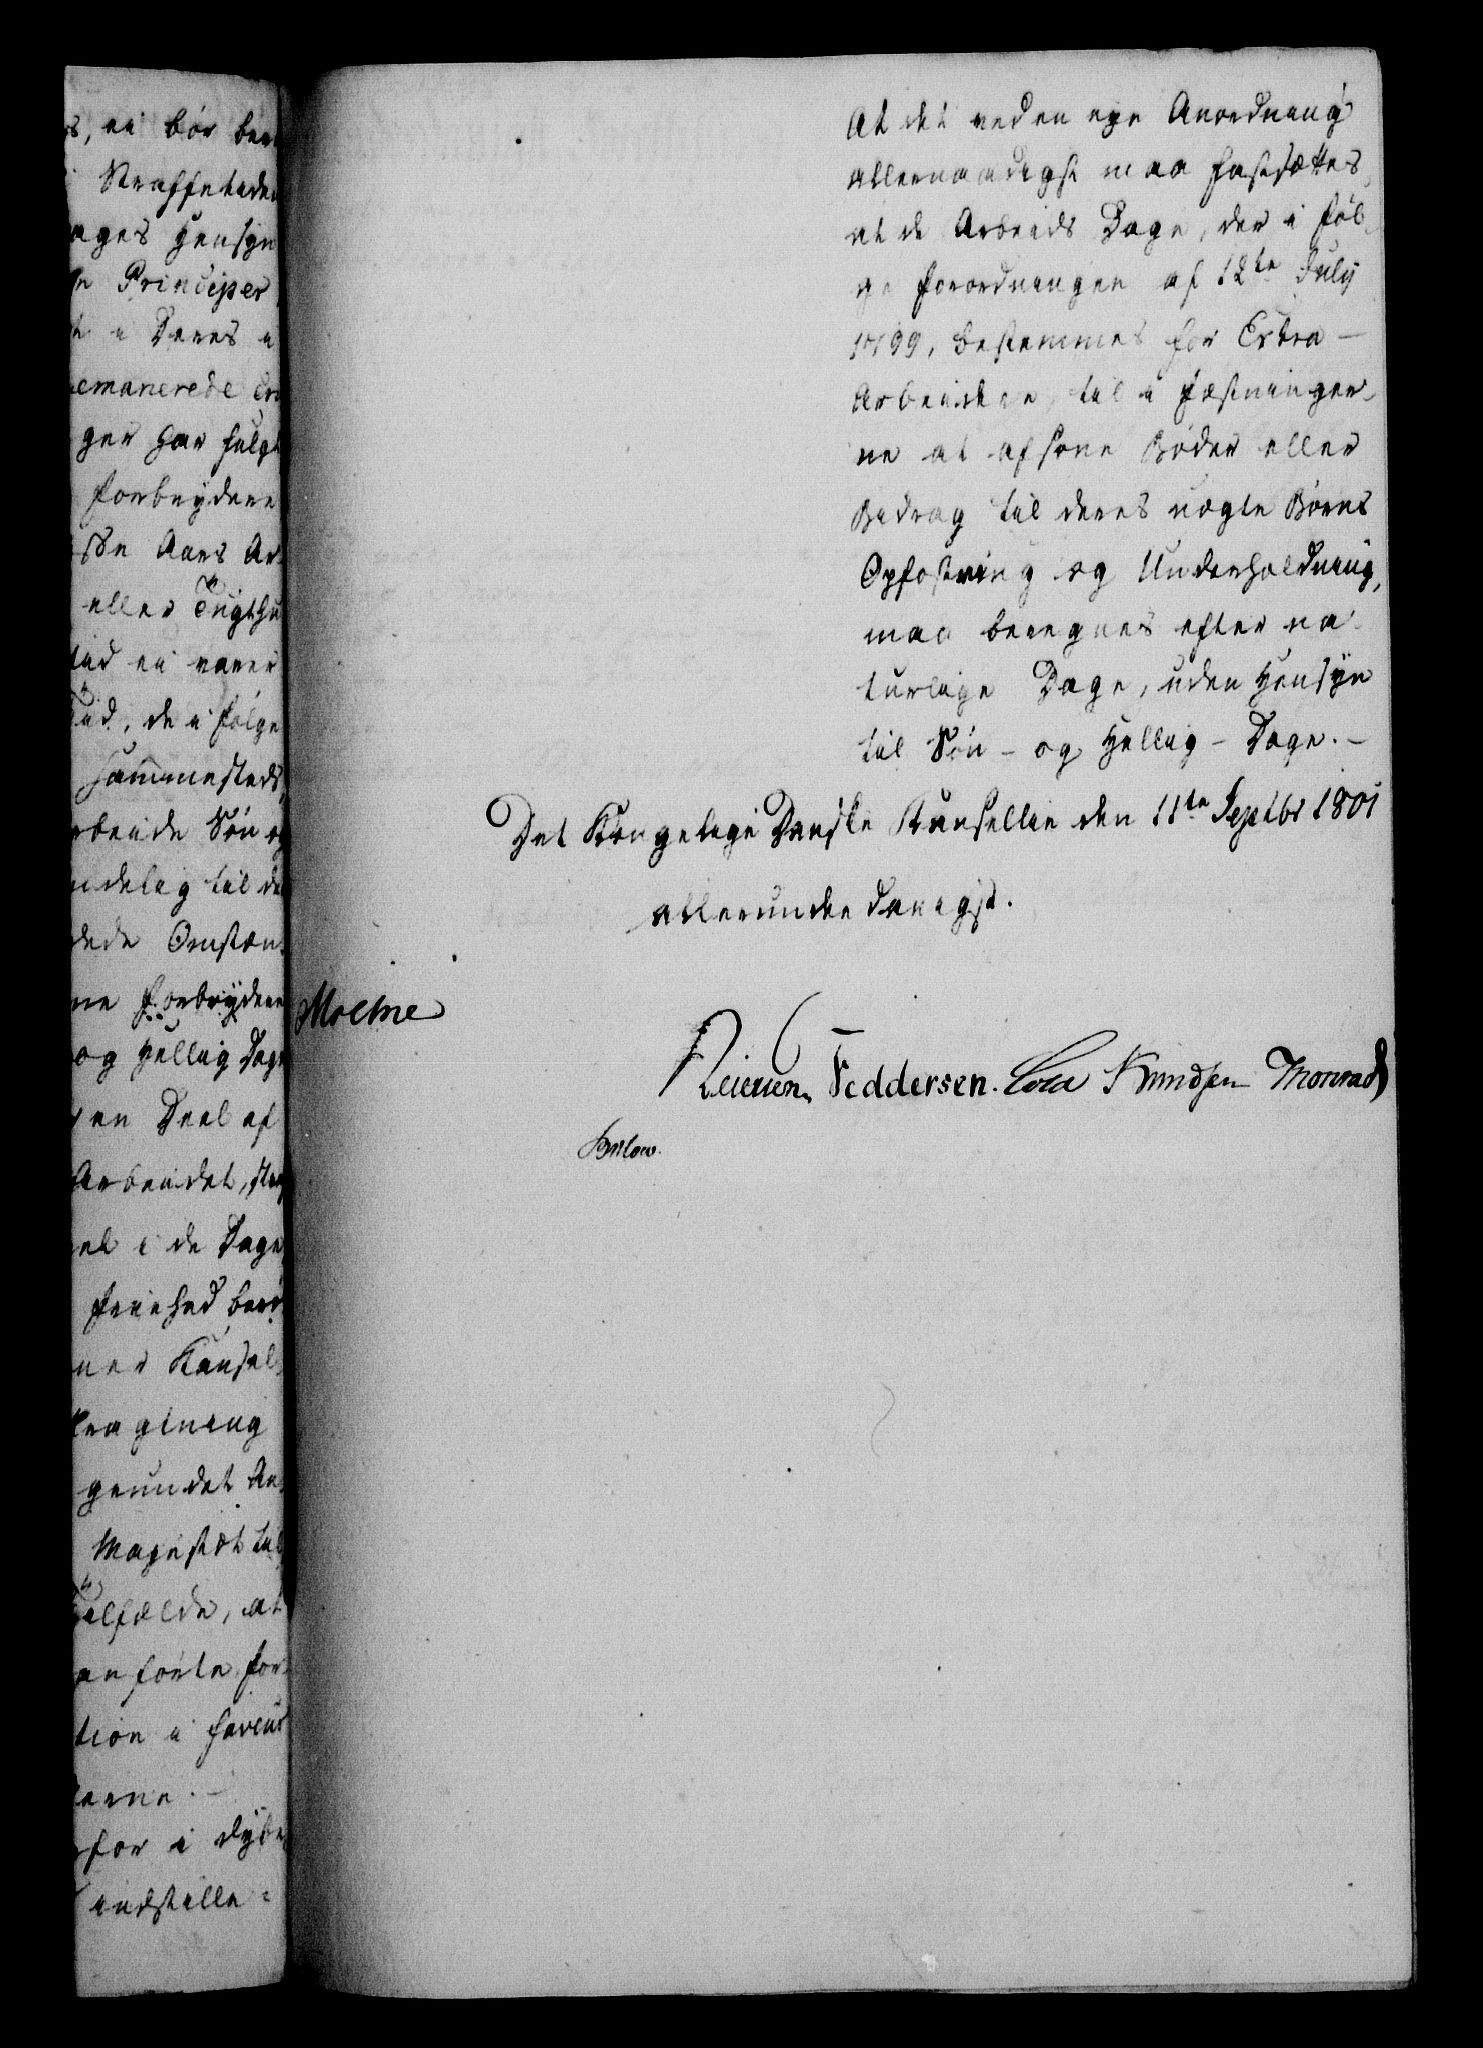 s, ei bør ber
Straffetiden
ages Hensyn
Principer
i Deres
emanerede
ger har fulgt
forbrydere
Aars Ar
eller Tugthu
tid ei varer
Tid, de i følge
sammesteds,
rbeide Søn og
ndelig til de
dede Omstæn-
ne forbrydere
og Hellig Dage
en Deel af
Arbeidet,
et i de Dage
friehed berø
ner Kansel-
tragtning
grundet An-
Majestæt til
tilfælde, at
anførte for-
tion i faveur
erne. -
for i dybe
indstille:
At det ved en nye Anordning
allernaadigst maa fastsættes,
at de Arbeids Dage, der i føl-
ge forordningen af 12te July
1799, bestemmes for Extra-
Arbeidere, til i fæstninger-
ne at afsone Bøder eller
Bidrag til deres uægte Børns
Opfostring og Underholdning,
maa beregnes efter na-
turlige Dage, uden Hensyn
til Søn- og Hellig-Dage. -
Det Kongelige Danske Kansellie den 11te Septbr 1801
allerunderdanigst.
Moltke
Reiersen, Feddersen. Cold Knudsen Monrad
Bülow.